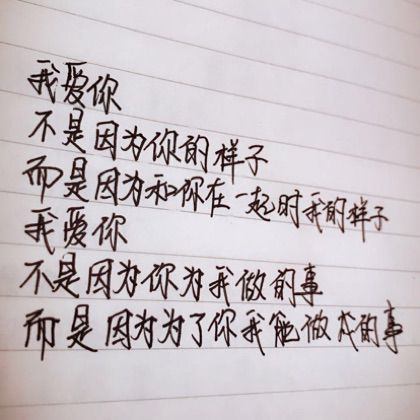 我爱你
不是因为你的样子
而是因为和你在一起时我的样子
我爱你
不是因为你为我做的事
而是因为为了你我能做成的事